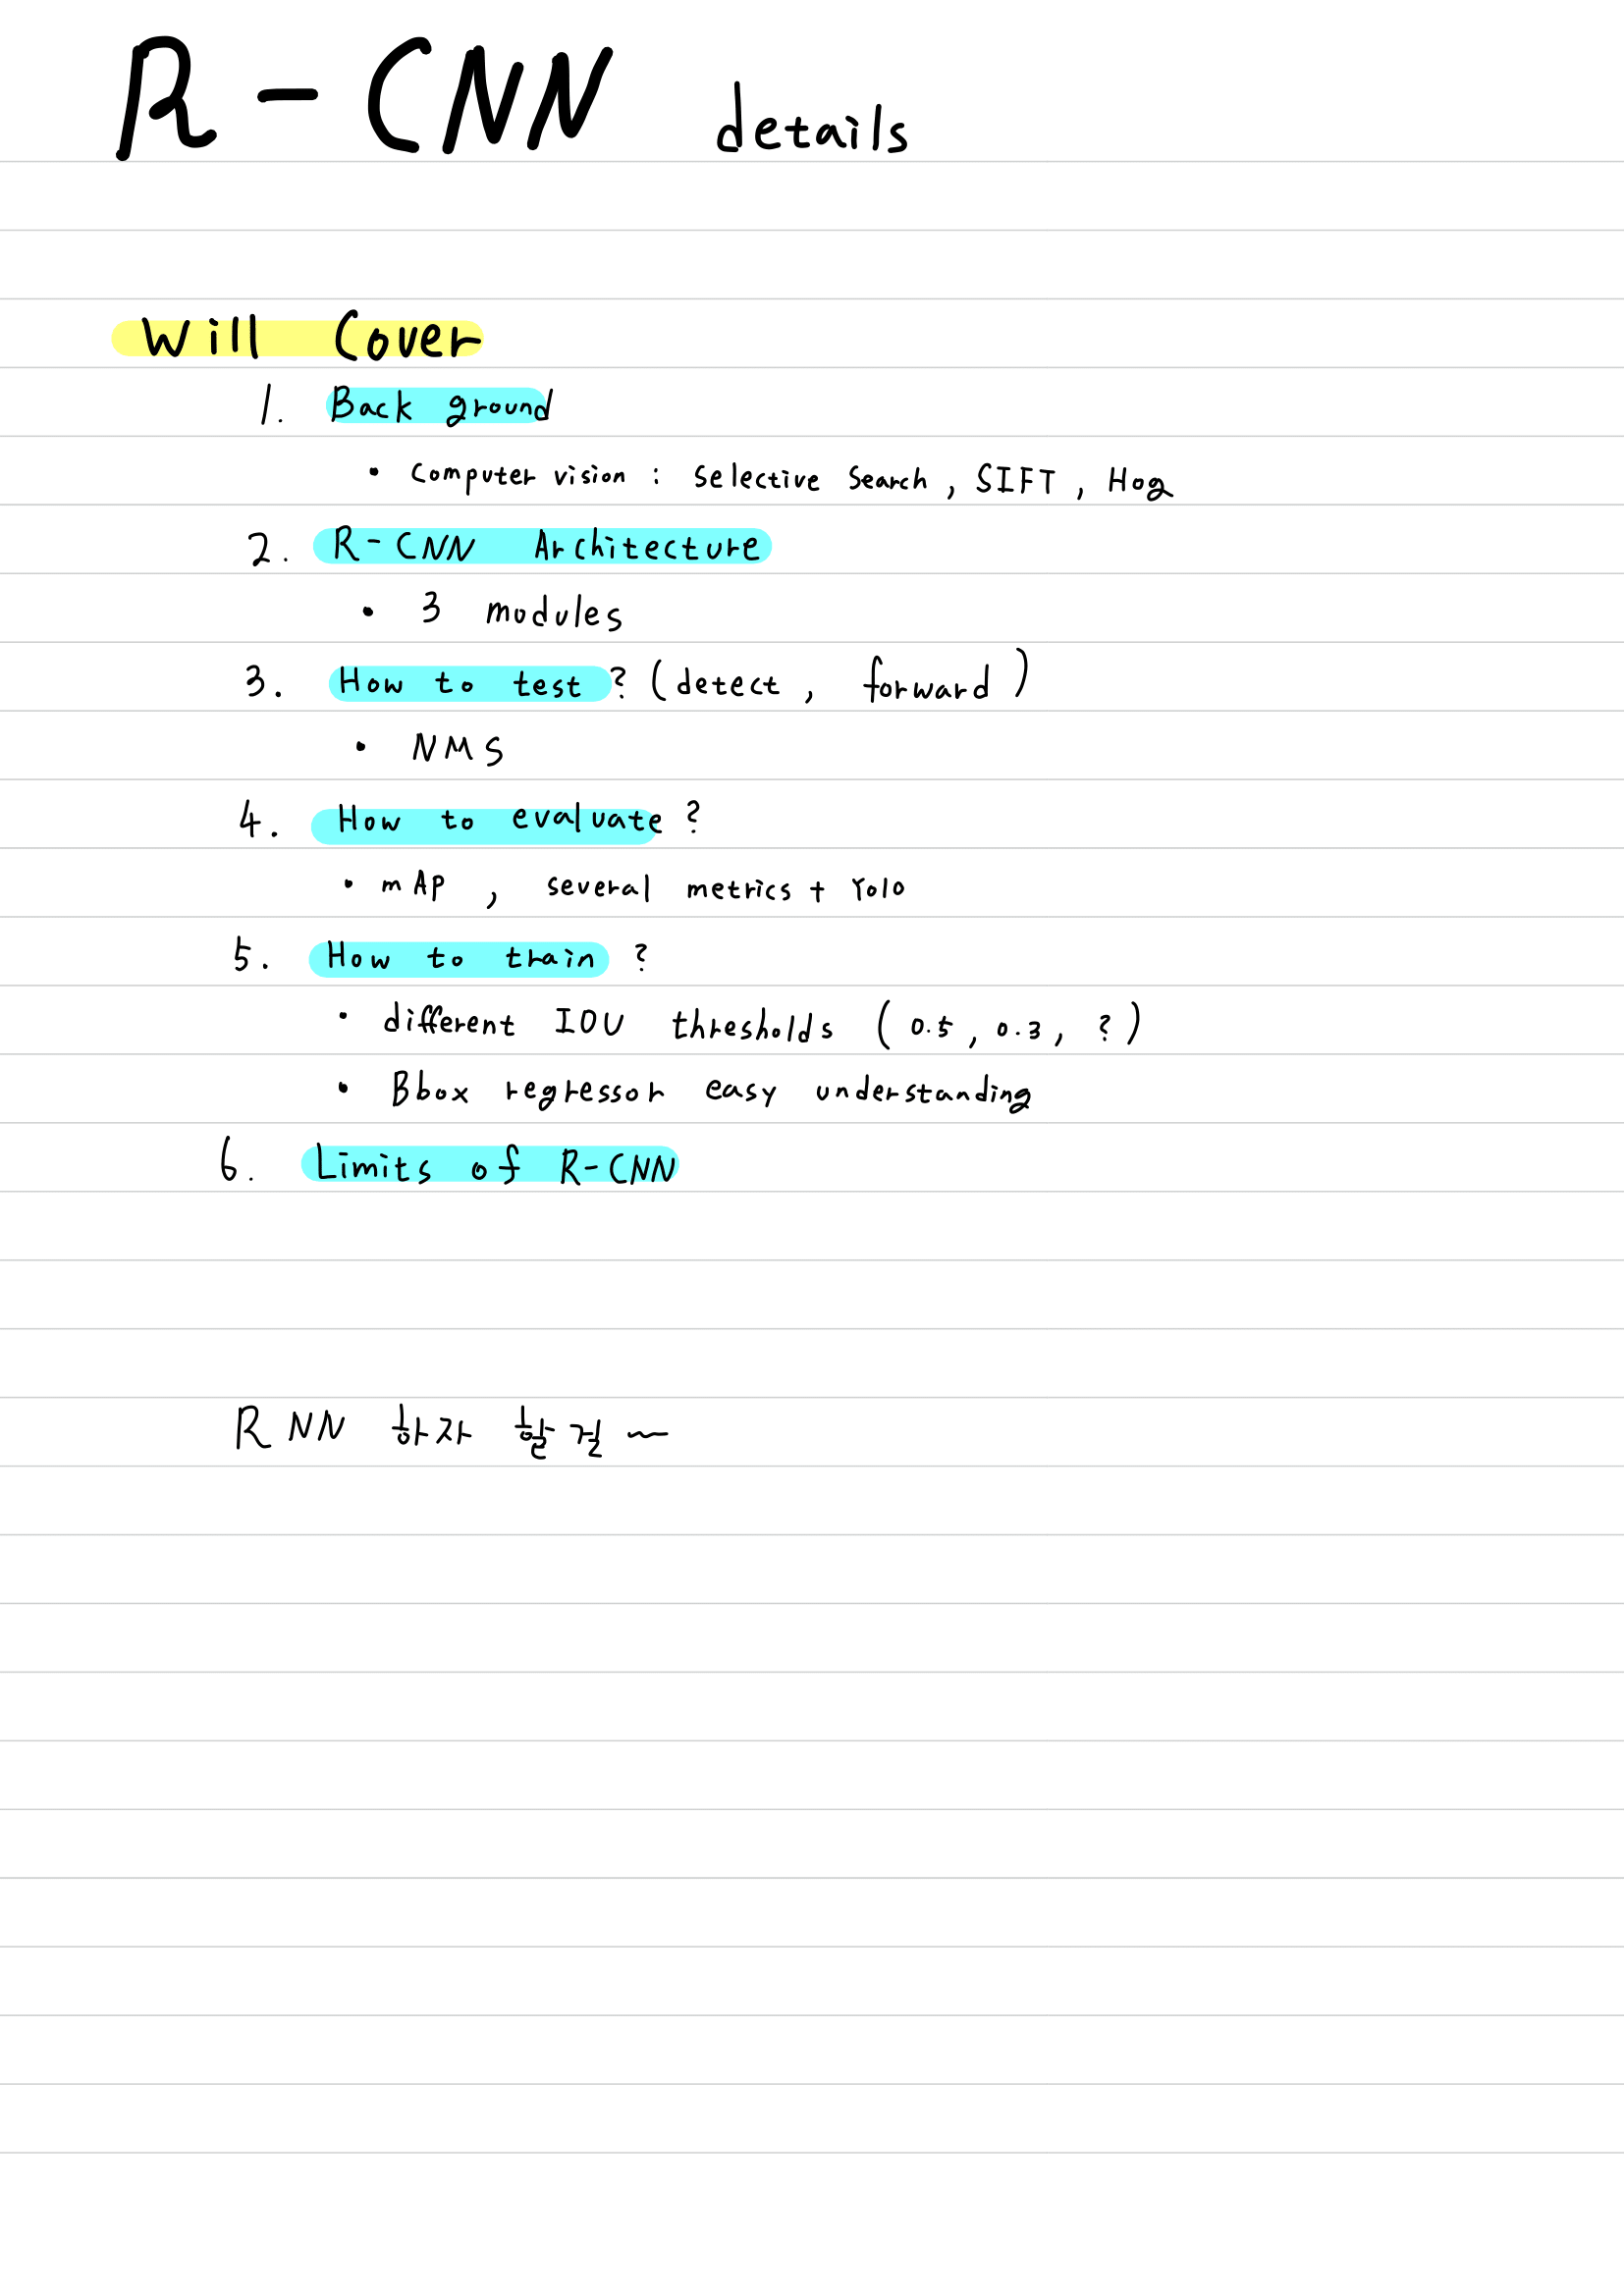 R-CNN details
Will Cover
1. Back ground
• Computer vision : Selective Search, SIFT, Hog
2. R-CNN Architecture
• 3 modules
3. How to test? (detect, forward)
• NMS
4. How to evaluate?
• mAP, several metrics + Yolo
5. How to train?
• different IOU thresholds (0.5, 0.3, ?)
• Bbox regressor easy understanding
6. Limits of R-CNN
RNN 하자 할걸~